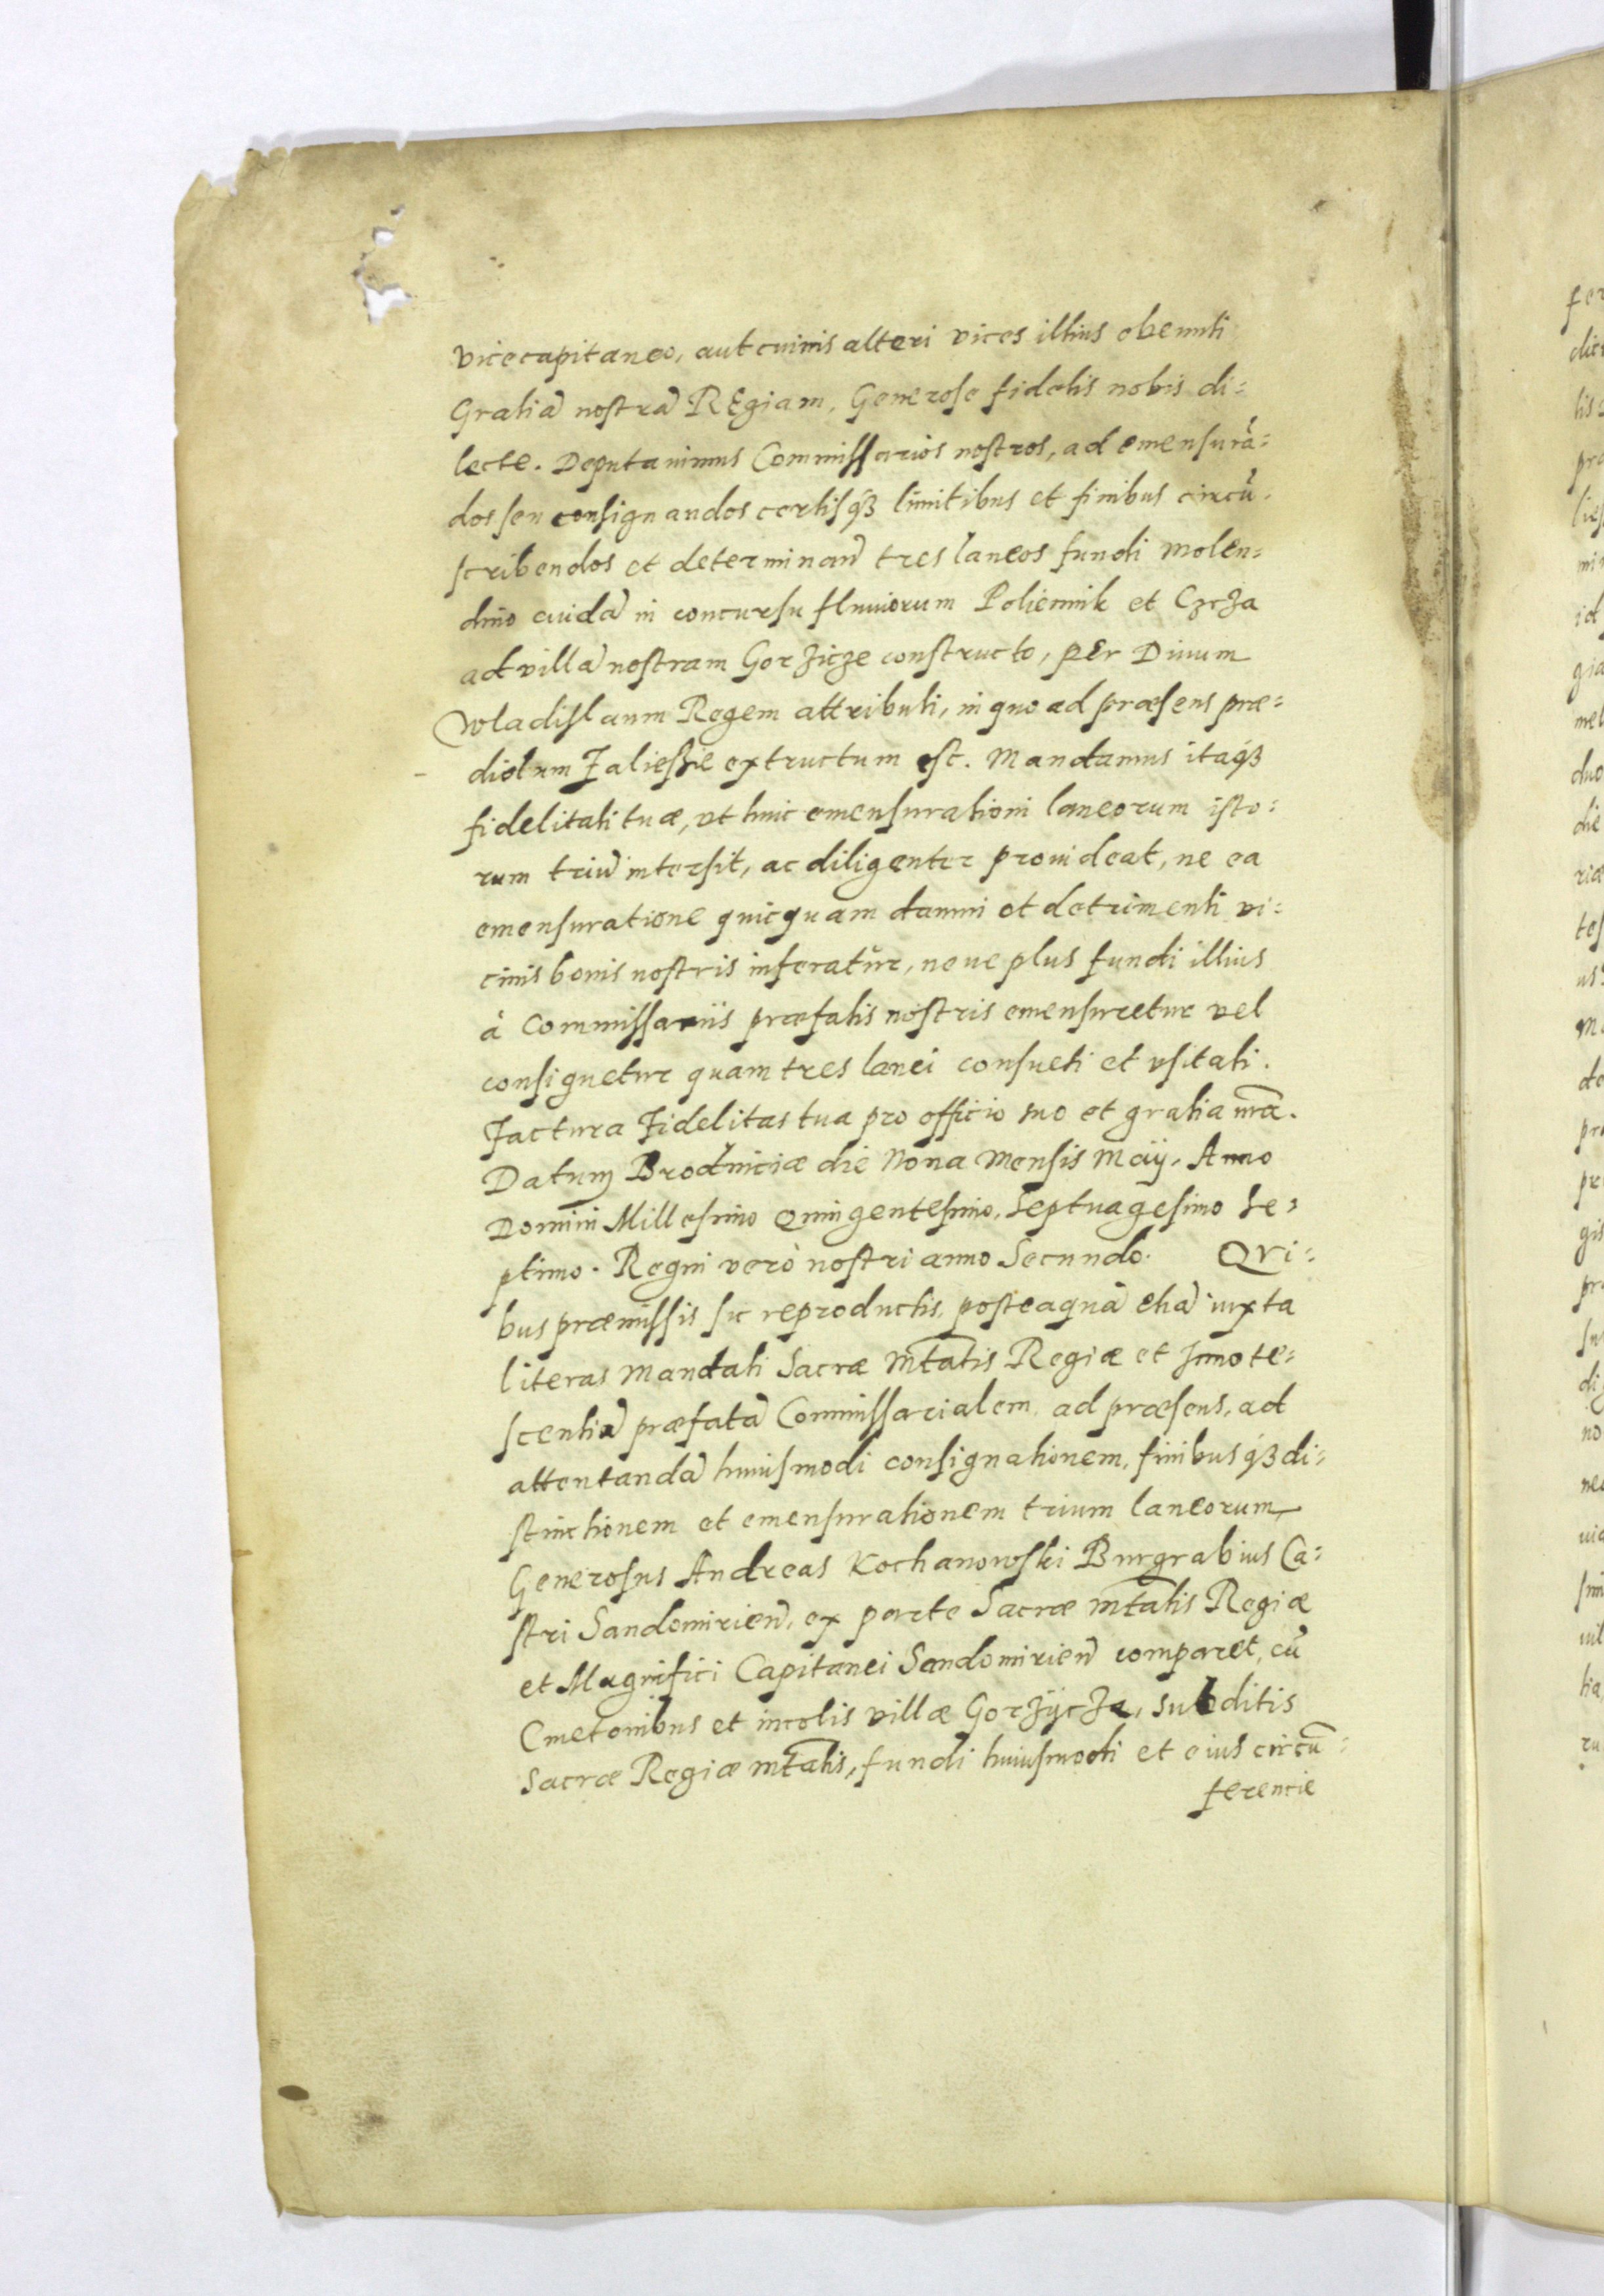 vicecapitaneo, aut cuiuis alteri vices illius obeunti
Gratiā nostrā REgiam, Generose fidelis nobis di=
lecte. Deputauimus Commissarios nostros, ad emensurā=
dos seu consignandos certisq́ʒ limitibus et finibus circū=
scribendos et determinan̄ tres laneos fundi molen=
dino cuidā in concursu fluuiorum Poliennik et CzcZa
ad villā nostram GorZicze constructo, pEr Diuum
Wladislaum Regem attributi, in quo ad præsens præ=
diolum Zalieszie extructum est. Mandamus itaq́ʒ
fidelitati tuæ, vt huic emensurationi laneorum isto=
rum triū intersit, ac diligenter prouideat, ne ea
emensuratione quicquam damni et detrimenti vi=
cinis bonis nostris inferatur, neue plus fundi illius
à Commissariis præfatis nostris emensuretur vel
consignetur quam tres lanei consueti et vsitati.
Factura Fidelitas tua pro officio suo et gratia nr̄a.
Datum Brodniciæ die Nona Mensis Maÿ, Anno
Domini Millesimo Quingentesimo, Septuagesimo Se=
ptimo. Regni verò nostri anno Secundo. QVi=
bus præmissis sic reproductis, posteaquā etiā iuxta
literas Mandati Sacræ Mt̄atis Regiæ et Innote=
scentiā præfatā Commissarialem, ad præsens, ad
attentandā huiusmodi consignationem, finibusq́ʒ di=
stinctionem et emensurationem trium laneorum
Generosus Andreas Kochanowski Burgrabius Ca=
stri Sandomirien̄, ex parte Sacræ Mt̄atis Regiæ
et Magnifici Capitanei Sandomirien̄ comparet, cū
Cmetonibus et incolis villæ GorZÿcZe, subditis
Sacræ Regiæ Mt̄atis, fundi huiusmodi et eius circū=
ferencie